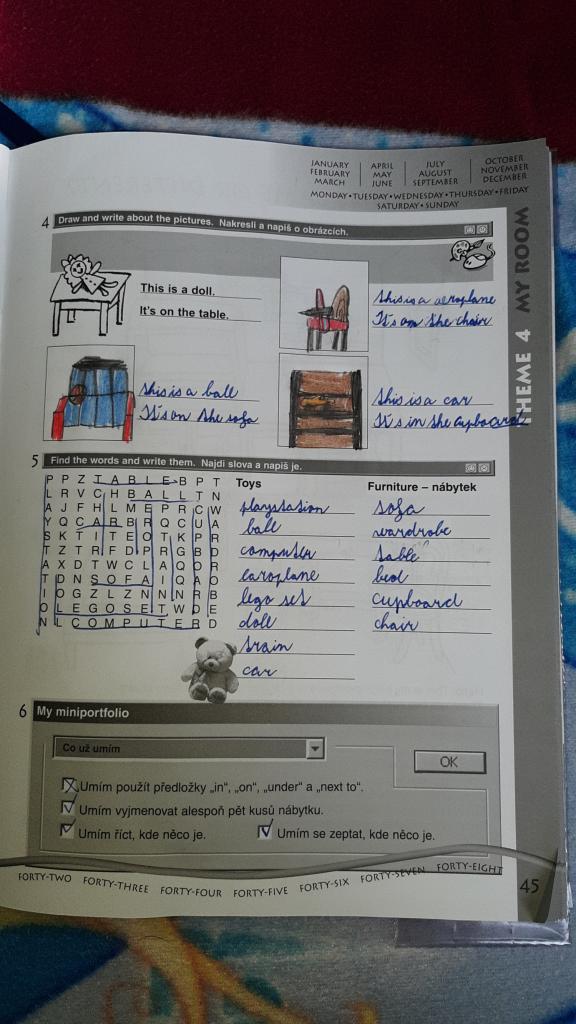 JANUARY APRIL JULY OCTOBER
FEBRUARY MAY AUGUST NOVEMBER
MARCH JUNE SEPTEMBER DECEMBER
MONDAY • TUESDAY • WEDNESDAY • THURSDAY • FRIDAY
SATURDAY • SUNDAY
THEME 4 MY ROOM
4 Draw and write about the pictures. Nakresli a napiš o obrázcích.
This is a doll.
It's on the table.
This is a aeroplane
It's on the chair
This is a ball
It's on the sofa
This is a car
It's in the cupboard
5 Find the words and write them. Najdi slova a napiš je.
P P Z T A B L E B P T
L R V C H B A L L T N
A J F H L M E P R C W
Y Q C A R B R Q C U A
S K T I T E O T K P R
T Z T R F D P R G B D
A X D T W C L A Q O R
T D N S O F A I Q A O
I O G Z L Z N N N R B
O L E G O S E T W D E
N L C O M P U T E R D
Toys
playstation
ball
computer
earoplane
lego set
doll
train
car
Furniture – nábytek
sofa
wardrobe
table
bed
cupboard
chair
6 My miniportfolio
Co už umím
OK
Umím použít předložky „in“, „on“, „under“ a „next to“.
Umím vyjmenovat alespoň pět kusů nábytku.
Umím říct, kde něco je.
Umím se zeptat, kde něco je.
FORTY-TWO FORTY-THREE FORTY-FOUR FORTY-FIVE FORTY-SIX FORTY-SEVEN FORTY-EIGHT
45